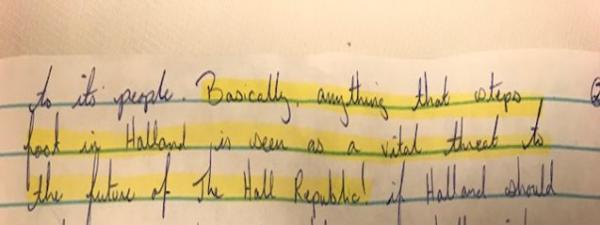 to its people. Basically, anything that steps
foot in Halland is seen as a vital threat to
the future of The Hall Republic! if Halland should